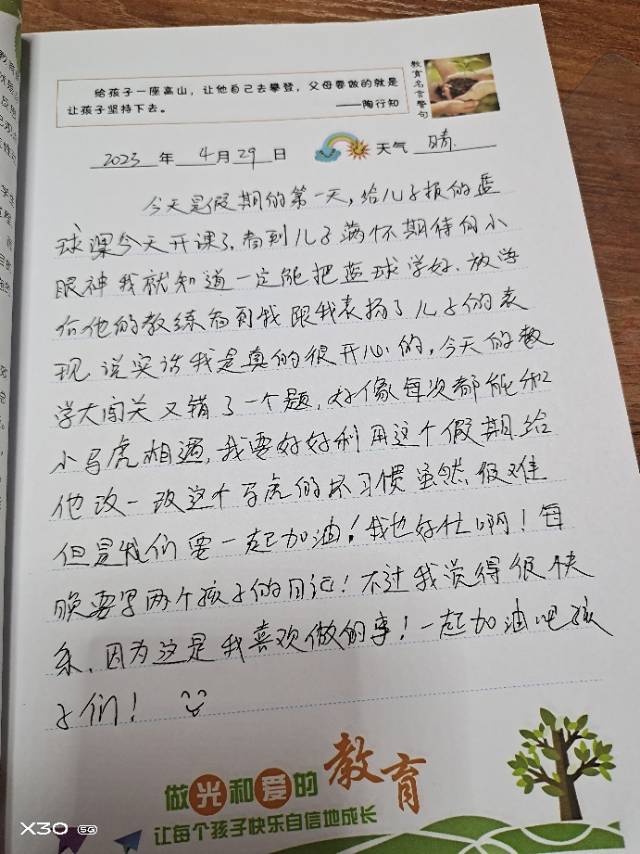 给孩子一座高山，让他自己去攀登，父母要做的就是
让孩子坚持下去。
——陶行知
教育名言警句
2023 年 4月 29 日 天气 晴.
今天是假期的第一天，给儿子报的蓝
球课今天开课了，看到儿子满怀期待的小
眼神我就知道一定能把蓝球学好，放学
后他的教练看到我跟我表扬了儿子的表
现，说实话我是真的很开心的，今天的数
学大闯关又错了一个题，好像每次都能和
小马虎相遇，我要好好利用这个假期给
他改一改这个马虎的坏习惯虽然很难
但是我们要一起加油！我也好忙啊！每
晚要写两个孩子的日记！不过我觉得很快
乐，因为这是我喜欢做的事！一起加油吧孩
子们！
做光和爱的教育
让每个孩子快乐自信地成长
X30 5G